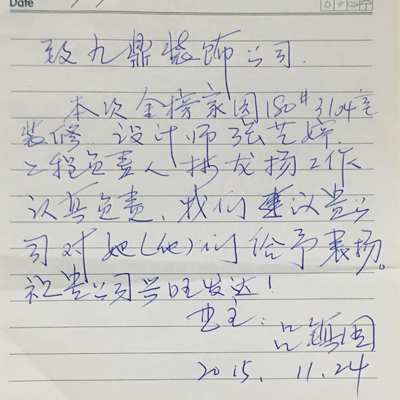 Date
致九鼎装饰公司.
本次金榜家园180#3104室
装修 设计师张艺婷
工程负责人 林龙扬工作
认真负责, 我们建议贵公
司对她(他)们给予表扬。
祝贵公司兴旺发达!
业主:
吕 国
2015. 11.24